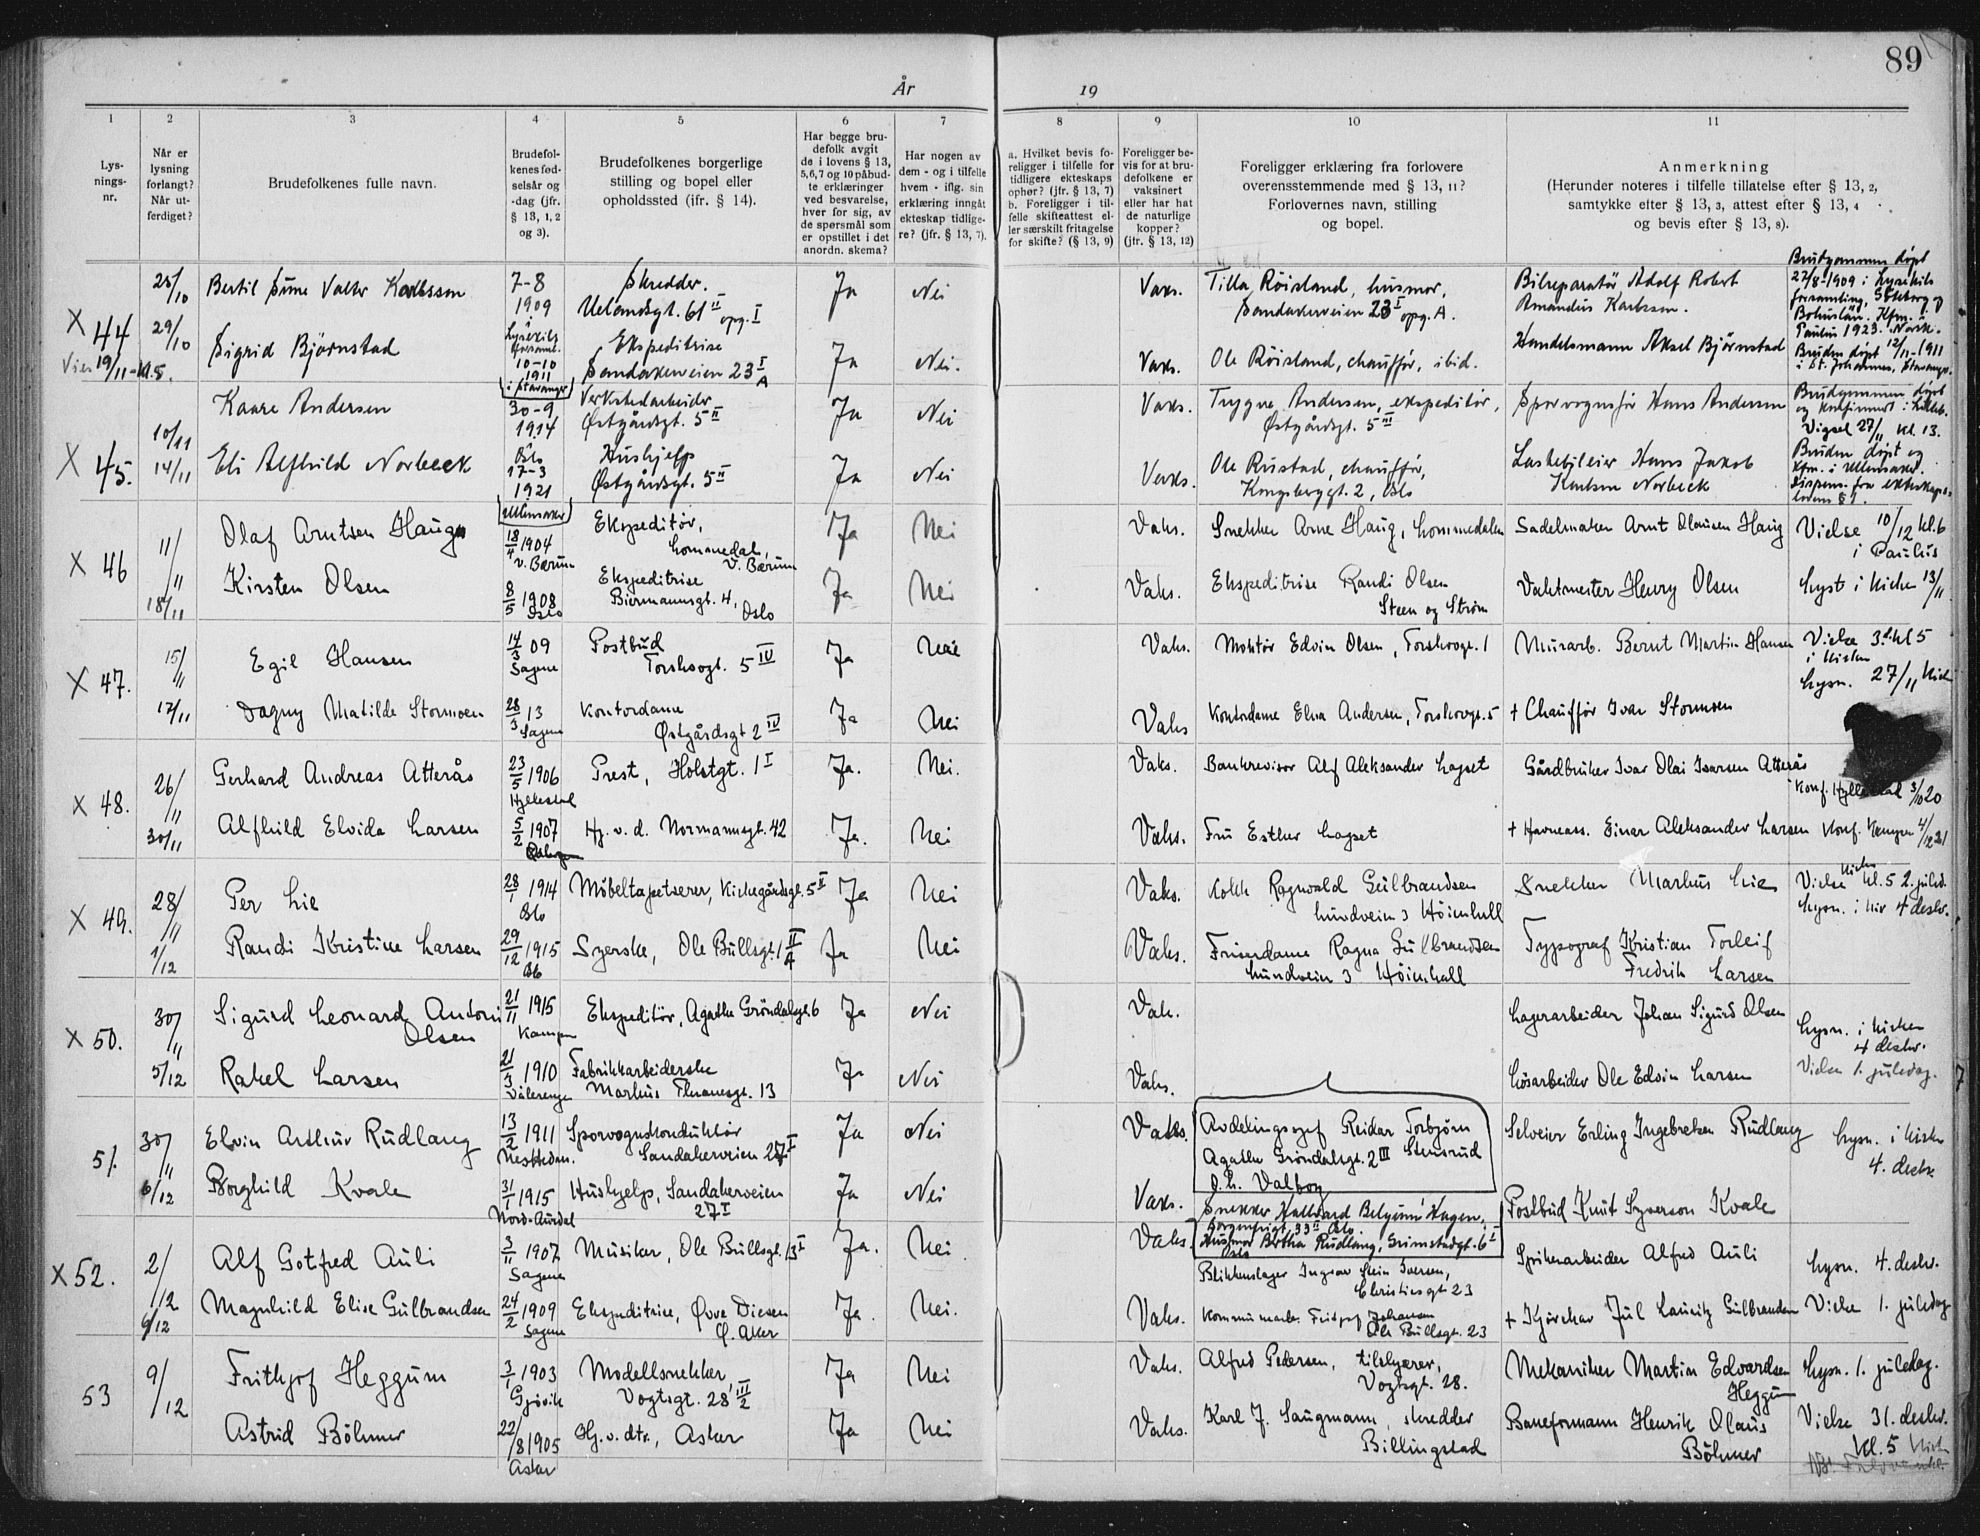 89
År
19
1
2
3
4
5
6
7
8
9
10
11
Lys-
nings-
nr.
Når er
lysning
forlangt?
Når ut-
ferdiget?
Brudefolkenes fulle navn.
Brudefol-
kenes fød-
selsår og
-dag (jfr.
§ 13, 1, 2
og 3).
Brudefolkenes borgerlige
stilling og bopel eller
opholdssted (ifr. § 14).
Har begge bru-
defolk avgit
de i lovens § 13,
5,6,7 og 10 påbud-
te erklæringer
ved besvarelse,
hver for sig, av
de spørsmål som
er opstillet i det
anordn. skema?
Har nogen av
dem - og i tilfelle
hvem - iflg. sin
erklæring inngåt
ekteskap tidlige-
re? (jfr. § 13, 7).
a. Hvilket bevis fo-
religger i tilfelle for
tidligere ekteskaps
ophør? (jfr. § 13, 7)
b. Foreligger i til-
felle skifteattest el-
ler særskilt fritagelse
for skifte? (§ 13, 9)
Foreligger be-
vis for at bru-
defolkene er
vaksinert
eller har hat
de naturlige
kopper?
(jfr. § 13, 12)
Foreligger erklæring fra forlovere
overensstemmende med § 13, 11?
Forlovernes navn, stilling
og bopel.
Anmerkning
(Herunder noteres i tilfelle tillatelse efter § 13, 2,
samtykke efter § 13, 3, attest efter § 13, 4
og bevis efter § 13, 8).
X 44
25/10
29/10
Vies 19/11 - kl. 5.
Bertil Sune Valter Karlsson
7-8
1909
Lysekils
forsaml.
Skredder.
Uelandsgt. 61 II opg. I
Ja
Nei
Vaks.
Tilla Röisland, husmor,
Sandakerveien 23 I opg. A.
Bilreparatör Adolf Robert
Amandus Karlsson.
Brudgommen döpt
27/8-1909 i Lysekils
forsamling, Göteborg og
Bohuslän. Kfm. i
Paulus 1923. Norsk.
Sigrid Bjørnstad
10-10
1911
i Stavanger
Ekspeditrise
Sandakerveien 23 I A
Ja
Nei.
Vaks.
Ole Röisland, chauffør, ibid.
Handelsmann Aksel Bjørnstad
Bruden döpt 12/11-1911
i St. Johannes, Stavanger.
X 45.
10/11
14/11
Kaare Andersen
30-9
1914
Oslo
Verkstedarbeider
Østgårdsgt. 5 II
Ja
Nei
Vaks.
Trygve Andersen, ekspeditör,
Østgårdsgt. 5 III
Sporvognsför Hans Andersen
Brudgommen döpt
og konfirmert i Lilleb.
Vigsel 27/11 kl. 13.
Eli Alfhild Norbeck
17-3
1921
Ullensaker
Hushjelp
Østgårdsgt. 5 II
Ja
Nei
Vaks.
Ole Rustad, chauffør,
Kongsberggt. 2, Oslo
Lastebileier Hans Jakob
Karlson Norbeck
Bruden döpt og
Kfm. i Ullensaker.
Dispens. fra ekteskaps-
lovens § 1.
X 46
11/11
18/11
Olaf Arntsen Haug
18/4 1904
V. Bærum
Ekspeditör,
Lommedal,
V. Bærum
Ja
Nei
Vaks.
Snekker Arne Haug, Lommedalen
Sadelmaker Arnt Olausen Haug
Vielse 10/12 kl. 6
i Paulus
Kirsten Olsen
8/5 1908
Oslo
Ekspeditrise
Biermannsgt. 4,
Oslo
Ja
Nei
Vaks.
Ekspeditrise Randi Olsen
Steen og Strøm
Vaktmester Henry Olsen
Lyst i Kirken 13/11
X 47.
15/11
17/11
Egil Hansen
14/3 09
Sagene
Postbud
Torshovgt. 5 IV
Ja
Nei
Vaks.
Montör Edvin Olsen, Torshovgt. 1
Murarb. Bernt Martin Hansen
Vielse 3. kl 5
i Kirken
Lysn. 27/11 Kirk
Dagny Matilde Stormoen
28/3 13
Sagene
Kontordame
Østgårdsgt 2 IV
Ja
Nei
Vaks
Kontordame Elna Andersen, Torshovgt. 5
+ Chauffør Ivar Stormoen
X 48.
26/11
30/11
Gerhard Andreas Atterås
23/5 1906
Hyllestad
Prest, Holstgt. 1 I
Ja.
Nei.
Vaks.
Bankrevisor Alf Aleksander Lagset
Gårdbruker Ivar Olai Ivarsen Atterås
Konf. Hyllestad 3/10 20
Alfhild Elvida Larsen
5/2 1907
Hj. v. d. Normannsgt. 42
Ja.
Nei
Vaks.
Fru Esther Lagset
+ Havneass. Einar Aleksander Larsen
Konf. Kampen 4/12 21
X 49.
28/11
1/12
Per Lie
28/1 1914
Oslo
Möbeltapetserer, Kirkegårdsgt. 5 II
Ja
Nei
Vaks.
Kokk Ragnvald Gulbrandsen
Lundveien 3 Höienhall
Snekker Markus Lie
Vielse Kirken kl. 5 2. juled.
Lysn. i Kir 4 desbr.
Randi Kristine Larsen
29/12 1915
Oslo
Syerske, Ole Bullsgt. 1 II A
Ja
Nei
Vaks.
Friserdame Ragna Gulbrandsen
Lundveien 3 Höienhall
Typograf Kristian Torleif
Fredrik Larsen
X 50.
30/11
5/12
Sigurd Leonard Antoni
Olsen
21/11 1915
Kampen
Ekspeditör, Agathe Gröndahlsgt. 6
Ja
Nei
Vak.
Lagerarbeider Johan Sigurd Olsen
Lysn. i Kirken
4 desbr.
Rakel Larsen
21/3 1910
Vålerengen
Fabrikkarbeiderske
Markus Thranesgt. 13
Ja
Nei
Vaks.
Løsarbeider Ole Edvin Larsen
Vielse 1. juledag.
51.
30/11
6/12
Elvin Arthur Rudlang
13/2 1911
Nes Hedm.
Sporvognskonduktör
Sandakerveien 27 I
Ja
Nei
Vaks.
Avdelingssjef Reidar Torbjörn
Stensrud
Agathe Gröndahlsgt. 2 III
Selveier Erling Ingebretsen Rudlang
Lysn. i Kirken
4. desbr.
Borghild Kvale
31/1 1915
Nord-Aurdal
Hushjelp, Sandakerveien
27 I
Ja
Nei
Vaks.
Snekker Hallvard Belgum Hagen,
33 II Oslo
Husmor Bertha Rudlang, Grimstadgt. 6 I
Oslo
Postbud Knut Syverson Kvale
X 52.
2/12
6/12
Alf Gotfred Auli
3/11 1907
Sagene
Musiker, Ole Bullsgt. 13 I
Ja.
Nei
Vaks.
Blikkenslager Ingvar Stein Iversen,
Christiesgt 23
Spikerarbeider Alfred Auli
Lysn. 4. desbr.
Magnhild Elise Gulbrandsen
24/2 1909
Sagene
Ekspeditrise, Øvre Diesen
Ø. Aker
Ja.
Nei.
Vaks.
Kommunearb. Fridtjof Johansen
Ole Bullsgt. 23
+ Kjørekar Jul Lauritz Gulbrandsen
Vielse 1. juledag
53
9/12
Frithjof Heggum
3/1 1903
Gjøvik
Modellsnekker,
Vogtsgt. 28 III/2
Ja
Nei
Vaks.
Alfred Pedersen, tilskjærer,
Vogtsgt. 28.
Mekaniker Martin Edvardsen
Heggum
Lysn. 1. juledag.
Astrid Böhmer
22/8 1905
Asker
Hj. v. dtr., Asker
Ja
Nei
Vaks.
Karl J. Saugmann, skredder
Billingstad
Baneformann Henrik Olaus
Böhmer
Vielse 31. desbr.
kl. 5 Kirken